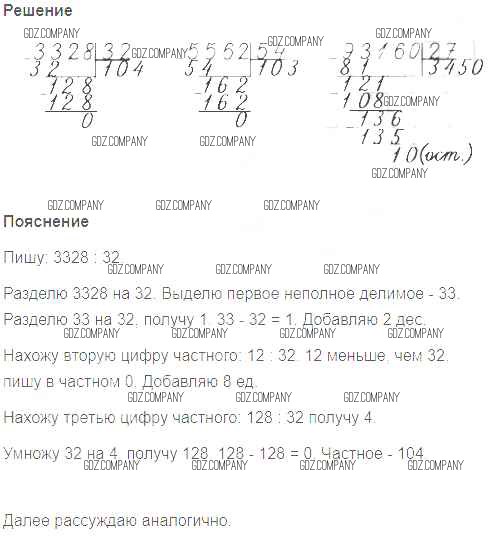 Решение
GDZ.COMPANY GDZ.COMPANY GDZ.COMPANY GDZ.COMPANY
3328 32 5562 54 93160 27
32 104 54 103 81 3450
128 162 121
128 162 108 GDZ.COMPANY
0 0 136
GDZ.COMPANY GDZ.COMPANY 135
10 (ост.)
GDZ.COMPANY
GDZ.COMPANY GDZ.COMPANY GDZ.COMPANY
Пояснение
Пишу: 3328 : 32.
GDZ.COMPANY GDZ.COMPANY GDZ.COMPANY
Разделю 3328 на 32. Выделю первое неполное делимое - 33.
Разделю 33 на 32, получу 1. 33 - 32 = 1. Добавляю 2 дес.
GDZ.COMPANY GDZ.COMPANY GDZ.COMPANY GDZ.COMPANY
Нахожу вторую цифру частного: 12 : 32. 12 меньше, чем 32,
пишу в частном 0. Добавляю 8 ед.
GDZ.COMPANY GDZ.COMPANY GDZ.COMPANY
Нахожу третью цифру частного: 128 : 32 получу 4.
Умножу 32 на 4, получу 128. 128 - 128 = 0. Частное - 104.
GDZ.COMPANY GDZ.COMPANY GDZ.COMPANY GDZ.COMPANY
Далее рассуждаю аналогично.